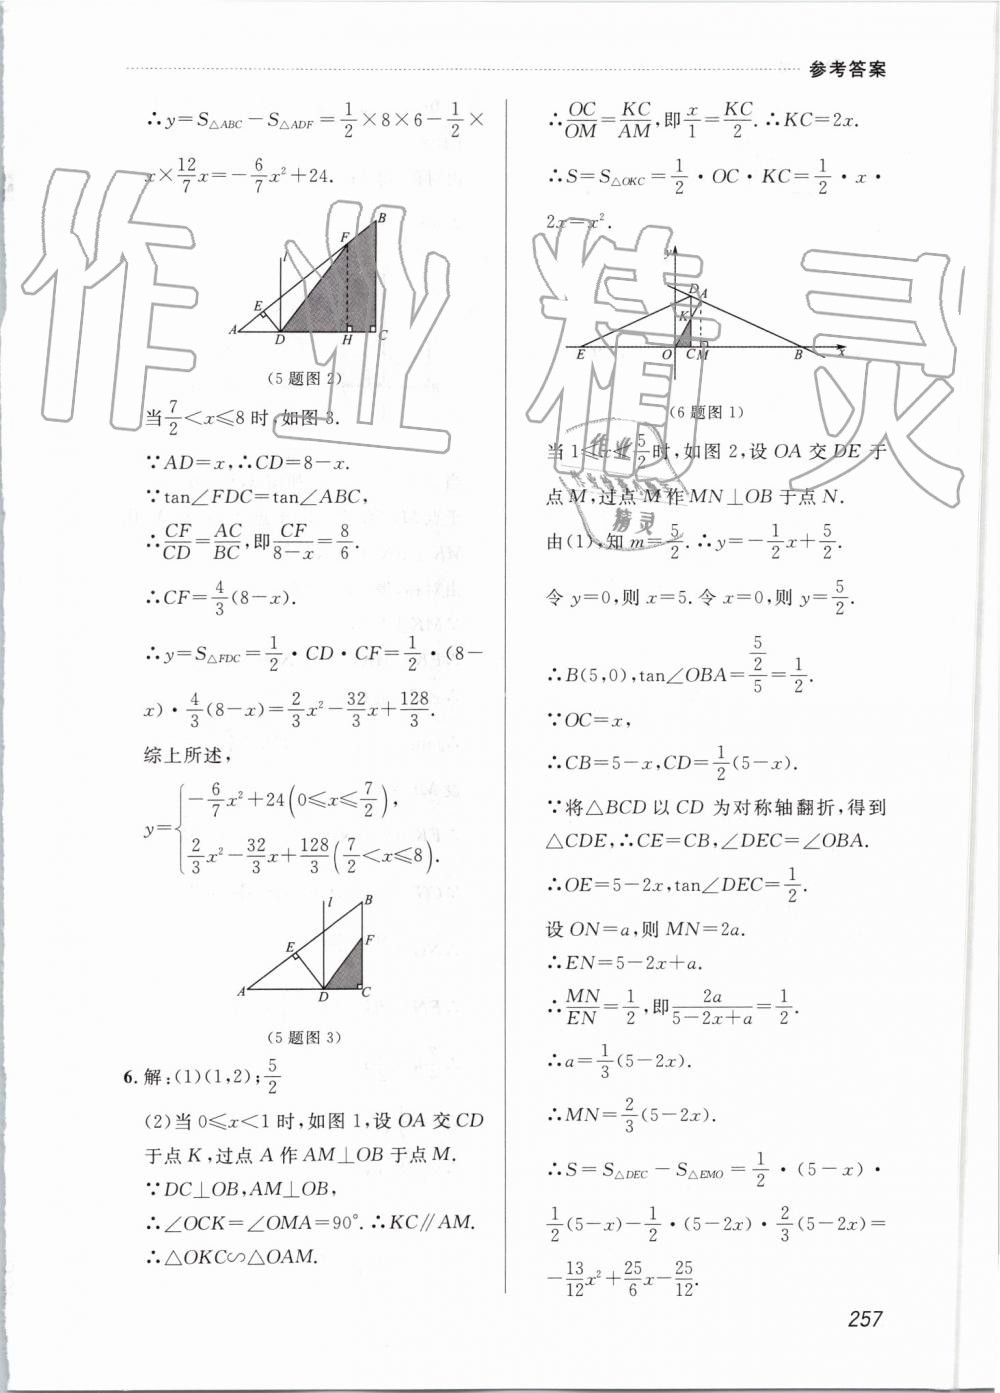 参考答案
∴y=S△ABC-S△ADF=1/2×8×6-1/2×
x×12/7x=-6/7x²+24.
B
F
l
E
A D H C
(5题图2)
当7/2<x≤8时,如图3.
∵AD=x,∴CD=8-x.
∵tan∠FDC=tan∠ABC,
∴CF/CD=AC/BC,即CF/(8-x)=8/6.
∴CF=4/3(8-x).
∴y=S△FDC=1/2·CD·CF=1/2·(8-
x)·4/3(8-x)=2/3x²-32/3x+128/3.
综上所述,
y={-6/7x²+24(0≤x≤7/2),
2/3x²-32/3x+128/3(7/2<x≤8).
l B
F
E
A D C
(5题图3)
6.解:(1)(1,2);5/2
(2)当0≤x<1时,如图1,设OA交CD
于点K,过点A作AM⊥OB于点M.
∵DC⊥OB,AM⊥OB,
∴∠OCK=∠OMA=90°.∴KC∥AM.
∴△OKC∽△OAM.
∴OC/OM=KC/AM,即x/1=KC/2.∴KC=2x.
∴S=S△OKC=1/2·OC·KC=1/2·x·
2x=x².
y
D A
K
E O C M B x
(6题图1)
当1≤x≤5/2时,如图2,设OA交DE于
点M,过点M作MN⊥OB于点N.
由(1),知m=5/2.∴y=-1/2x+5/2.
令y=0,则x=5.令x=0,则y=5/2.
∴B(5,0),tan∠OBA=(5/2)/5=1/2.
∵OC=x,
∴CB=5-x,CD=1/2(5-x).
∵将△BCD以CD为对称轴翻折,得到
△CDE,∴CE=CB,∠DEC=∠OBA.
∴OE=5-2x,tan∠DEC=1/2.
设ON=a,则MN=2a.
∴EN=5-2x+a.
∴MN/EN=1/2,即2a/(5-2x+a)=1/2.
∴a=1/3(5-2x).
∴MN=2/3(5-2x).
∴S=S△DEC-S△EMO=1/2·(5-x)·
1/2(5-x)-1/2·(5-2x)·2/3(5-2x)=
-13/12x²+25/6x-25/12.
257
作业精灵
作业
精灵